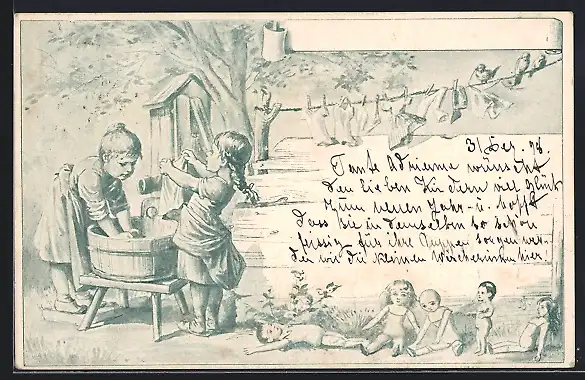 31 Dez. 98.
Tante Adrienne wünscht
den lieben Kindern viel Glück
zum neuen Jahr u. hofft
dass sie in demselben so schön
fleissig für ihre Puppen sorgen wer-
den wie die kleinen Wäscherinnen hier!